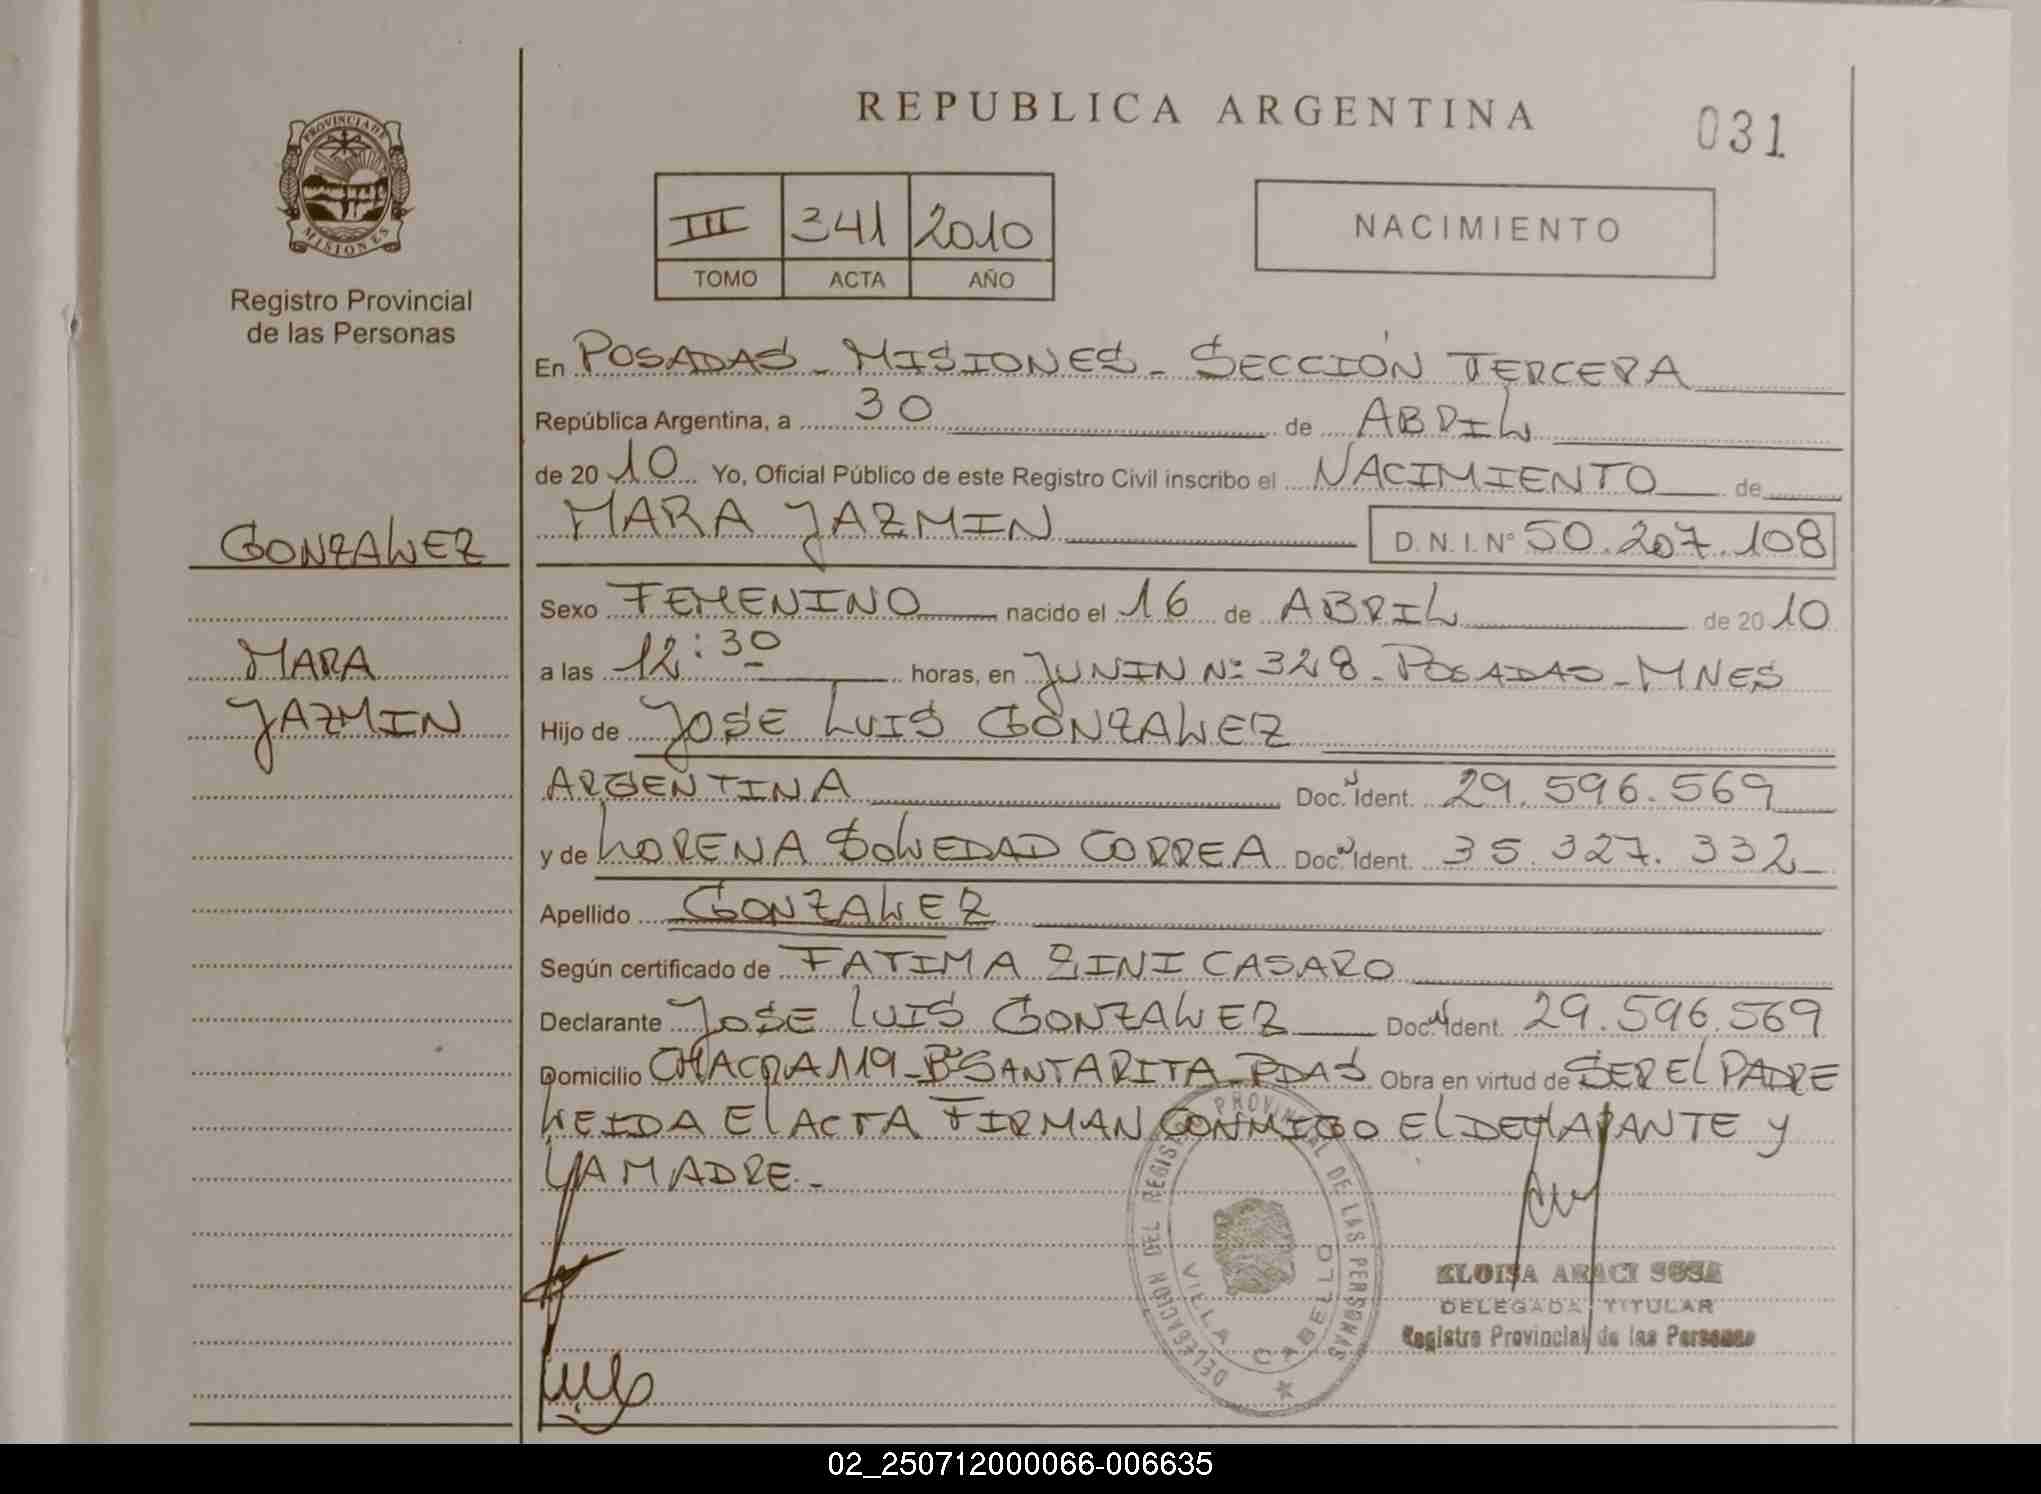 REPUBLICA ARGENTINA
031
PROVINCIA DE
MISIONES
Registro Provincial
de las Personas
III 341 2010
TOMO ACTA AÑO
NACIMIENTO
En POSADAS - MISIONES - SECCIÓN TERCERA
República Argentina, a 30 de ABRIL
de 2010 Yo, Oficial Público de este Registro Civil inscribo el NACIMIENTO de
MARA JAZMIN D. N. I. Nº 50.207.108
GONZALEZ
MARA
JAZMIN
Sexo FEMENINO nacido el 16 de ABRIL de 2010
a las 12:30 horas, en JUNIN Nº 328 - POSADAS - MNES
Hijo de JOSE LUIS GONZALEZ
ARGENTINA Doc. Ident. 29.596.569
y de LORENA SOLEDAD CORREA Doc. Ident. 35.327.332
Apellido GONZALEZ
Según certificado de FATIMA ZINI CASARO
Declarante JOSE LUIS GONZALEZ Doc. Ident. 29.596.569
Domicilio CHACRA 119 - Bº SANTA RITA - PDAS Obra en virtud de SER EL PADRE
LEIDA EL ACTA FIRMAN CONMIGO EL DECLARANTE Y
LA MADRE -
DELEGACION DEL REGISTRO PROVINCIAL DE LAS PERSONAS
VILLA CABELLO
ELOISA ARACI SOSA
DELEGADA TITULAR
Registro Provincial de las Personas
02_250712000066-006635